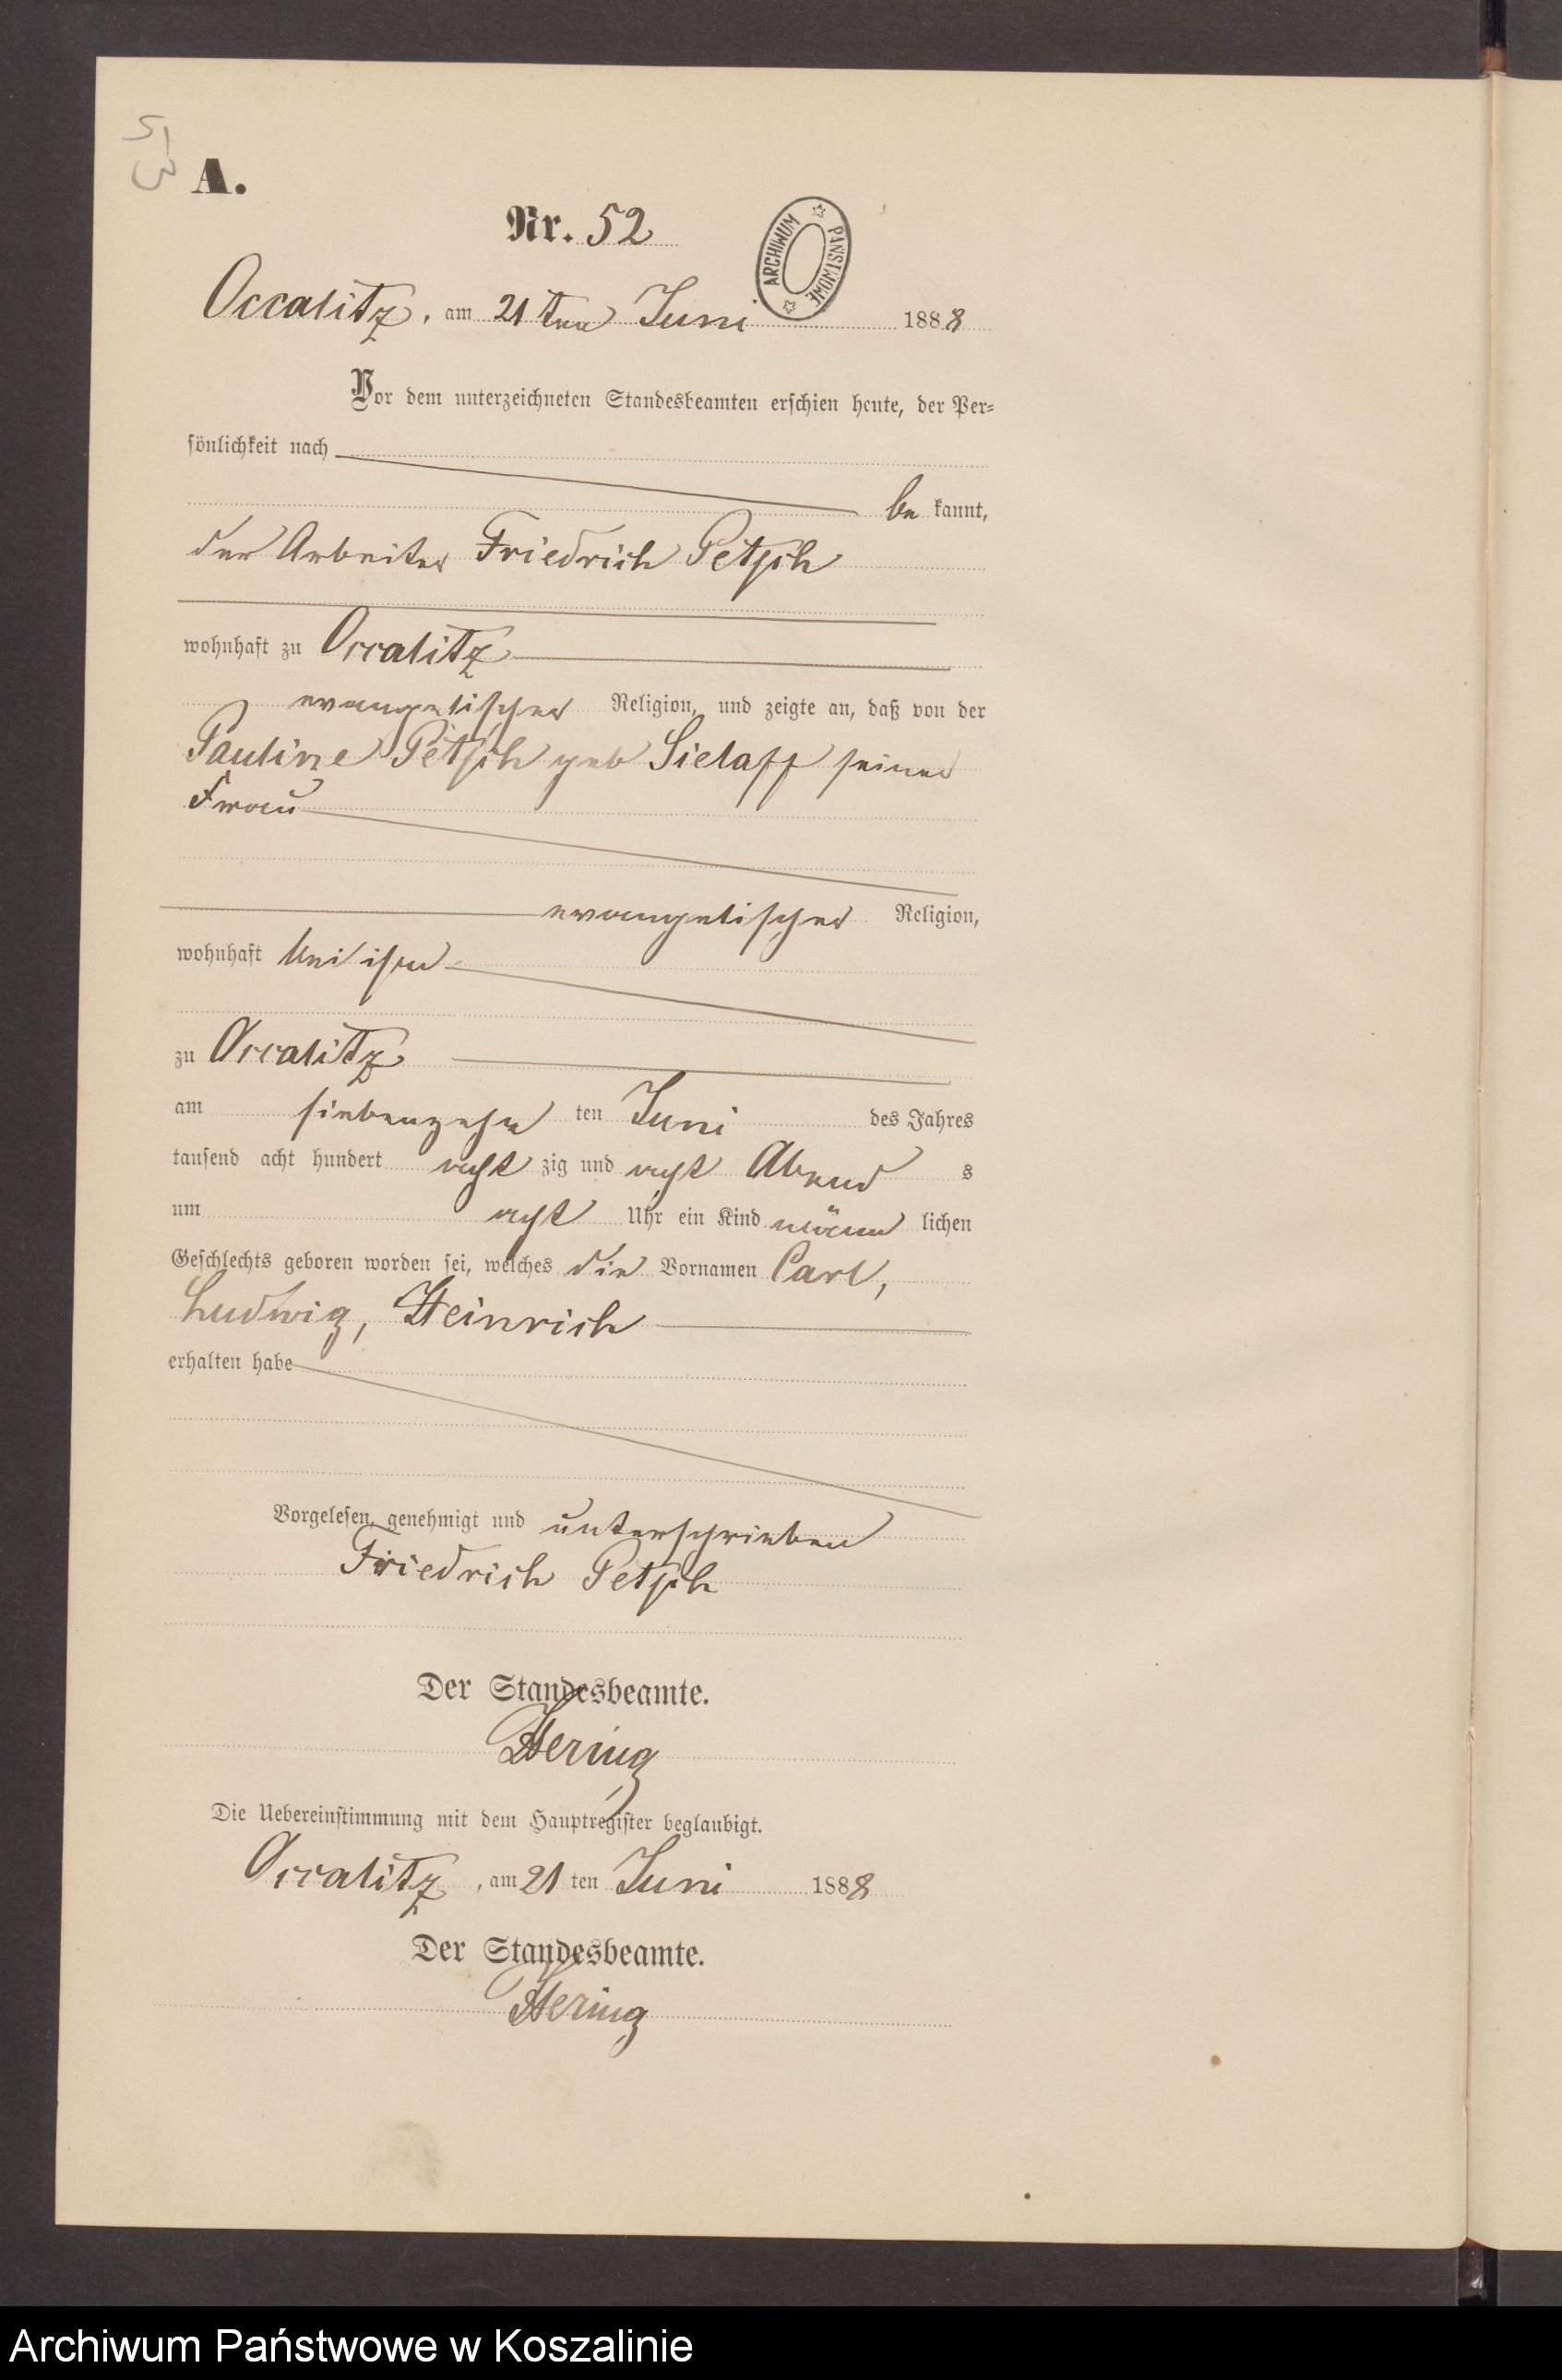 53
A.
Nr. 52
ARCHIWUM PAŃSTWOWE
Occalitz, am 21ten Juni 1888
Vor dem unterzeichneten Standesbeamten erschien heute, der Per-
sönlichkeit nach
be kannt,
der Arbeiter Friedrich Petsch
wohnhaft zu Occalitz
evangelischer Religion, und zeigte an, daß von der
Pauline Petsch geb Sielaff seiner
Frau
evangelischer Religion,
wohnhaft bei ihm
zu Occalitz
am siebenzehn ten Juni des Jahres
tausend acht hundert acht zig und acht Abend s
um acht Uhr ein Kind männ lichen
Geschlechts geboren worden sei, welches die Vornamen Carl,
Ludwig, Heinrich
erhalten habe
Vorgelesen, genehmigt und unterschrieben
Friedrich Petsch
Der Standesbeamte.
Hering
Die Uebereinstimmung mit dem Hauptregister beglaubigt.
Occalitz, am 21 ten Juni 1888
Der Standesbeamte.
Hering
Archiwum Państwowe w Koszalinie